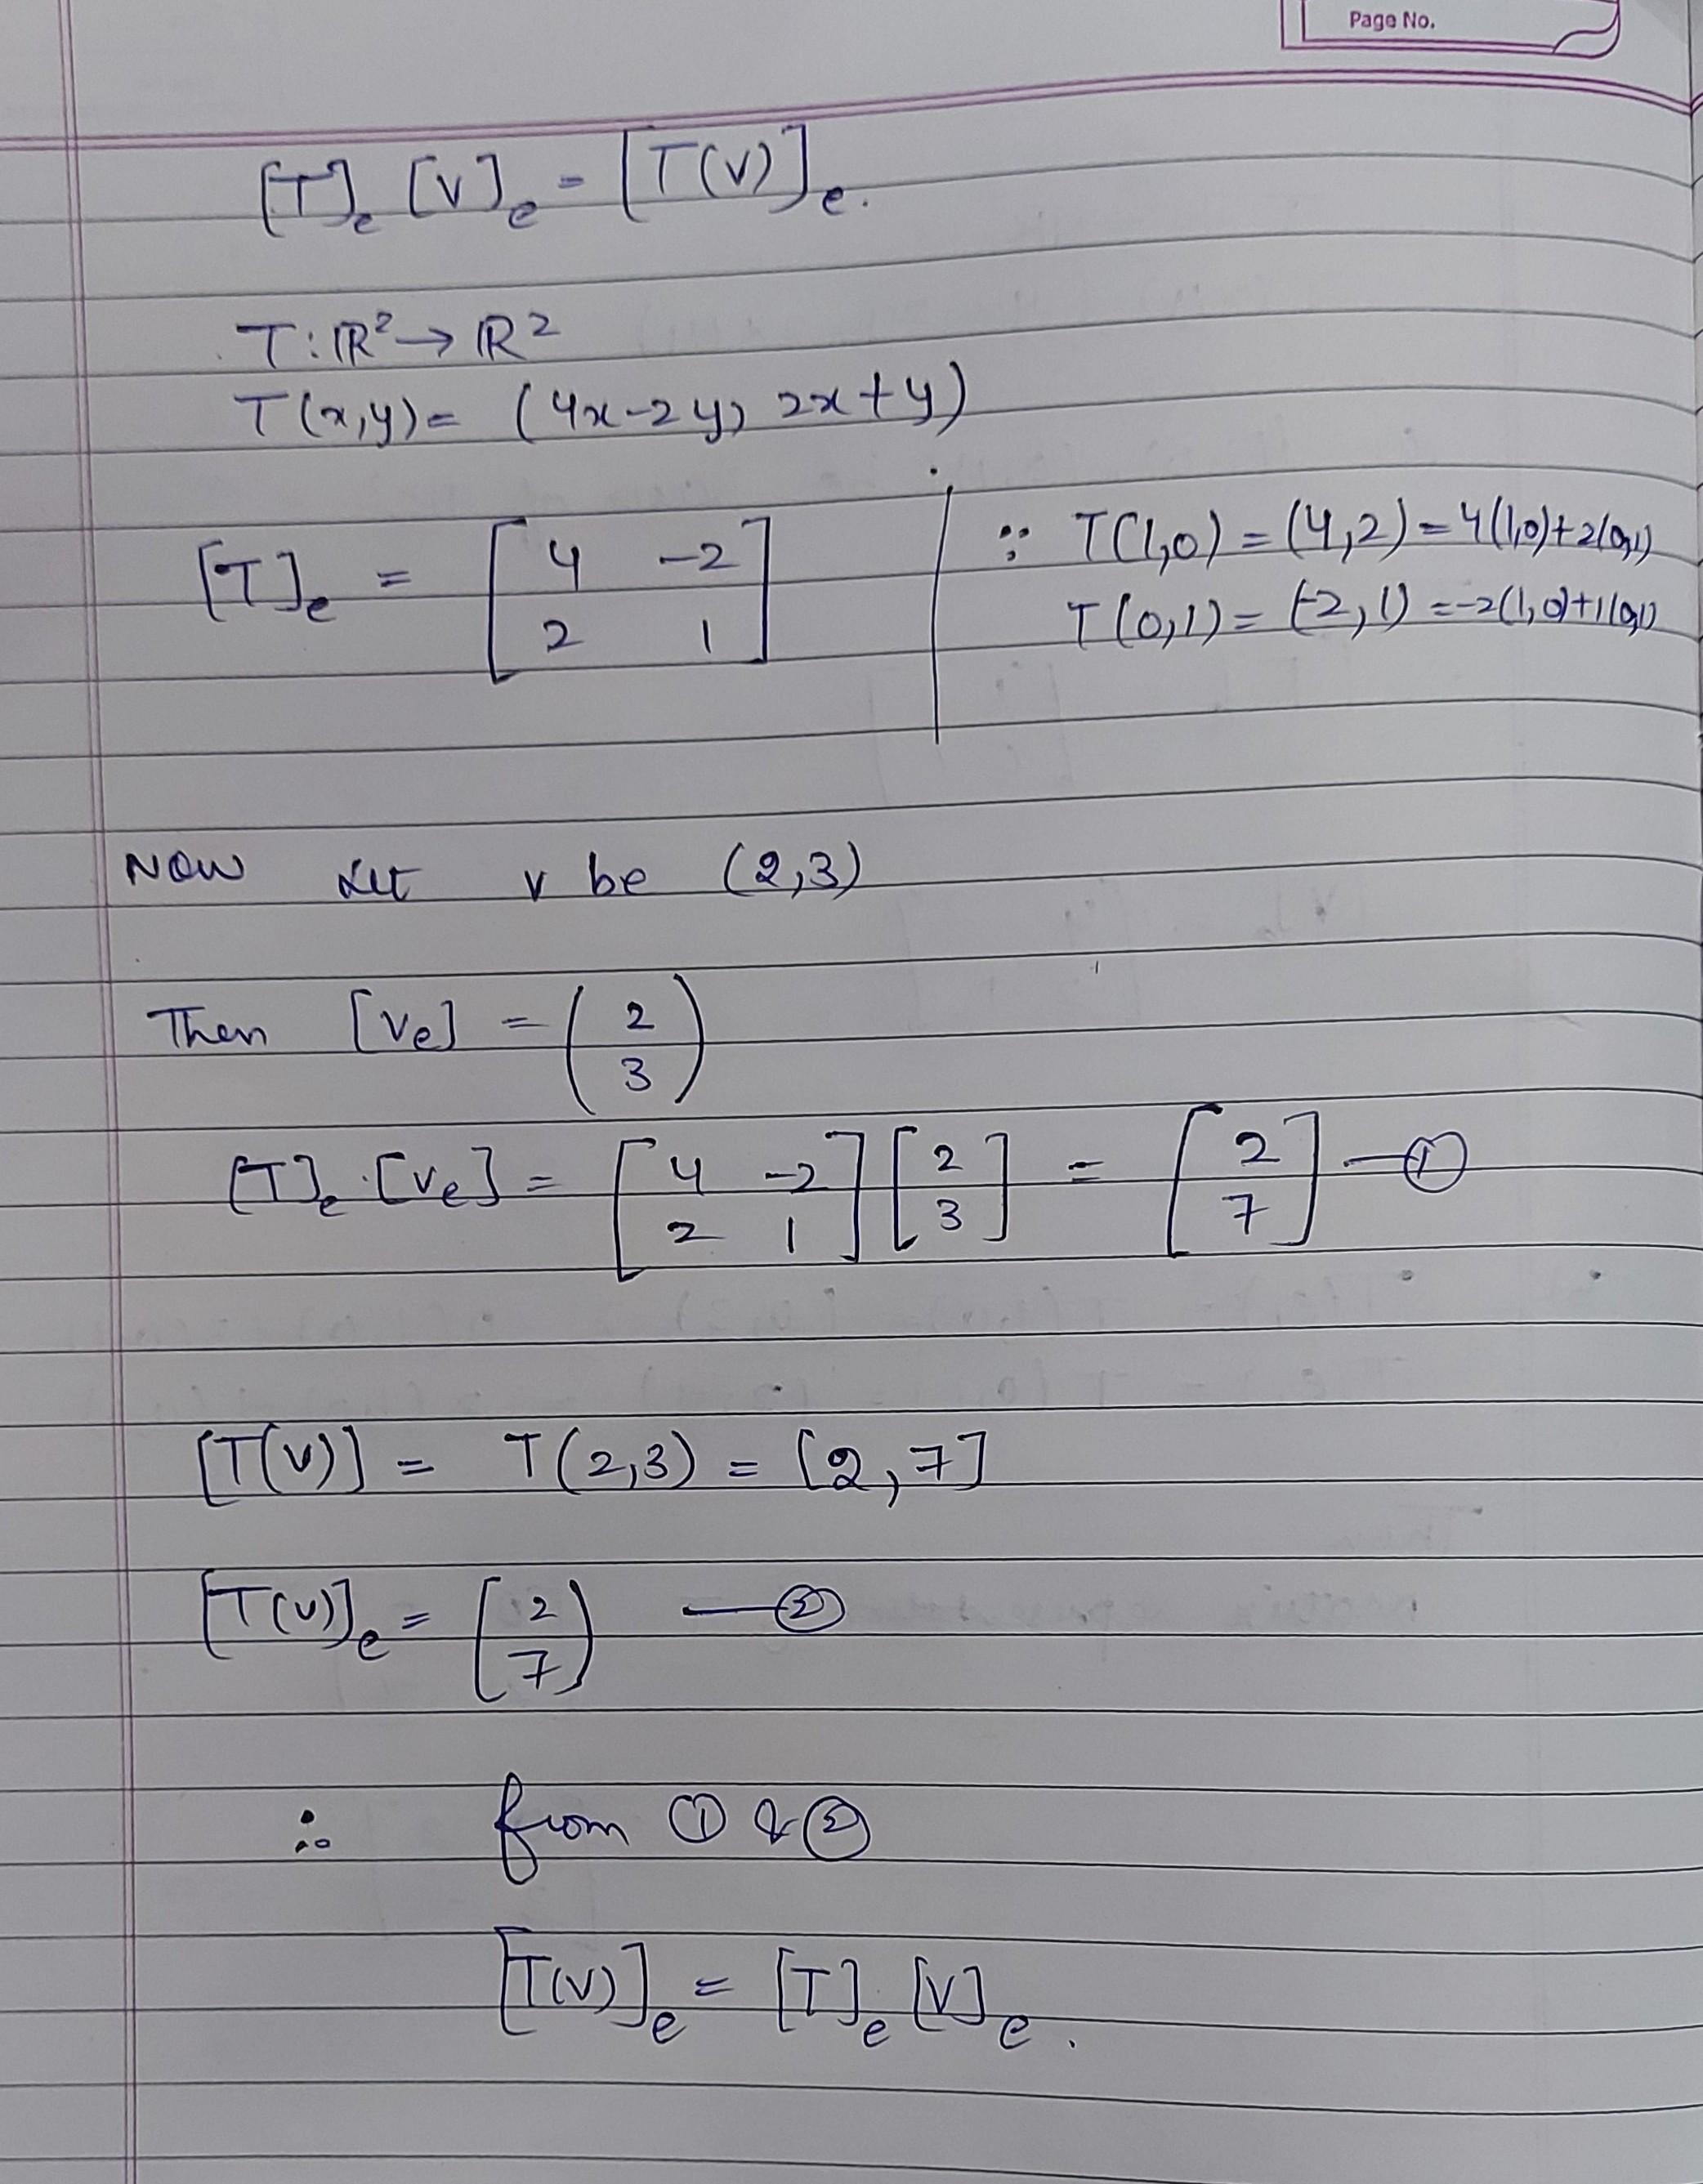 Page No.
[T]e [V]e = [T(V)]e.
T: ℝ² → ℝ²
T(x,y) = (4x-2y, 2x+y)
[T]e = [4 -2
2 1]
∵ T(1,0) = (4,2) = 4(1,0)+2(0,1)
T(0,1) = (-2,1) = -2(1,0)+1(0,1)
Now Let v be (2,3)
Then [ve] = (2
3)
[T]e.[ve] = [4 -2
2 1] [2
3] = [2
7] —①
[T(V)] = T(2,3) = [2,7]
[T(V)]e = [2
7) —②
∴ from ① & ②
[T(V)]e = [T]e [V]e.